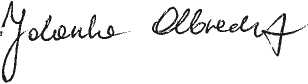 Jolanka Olbrecht